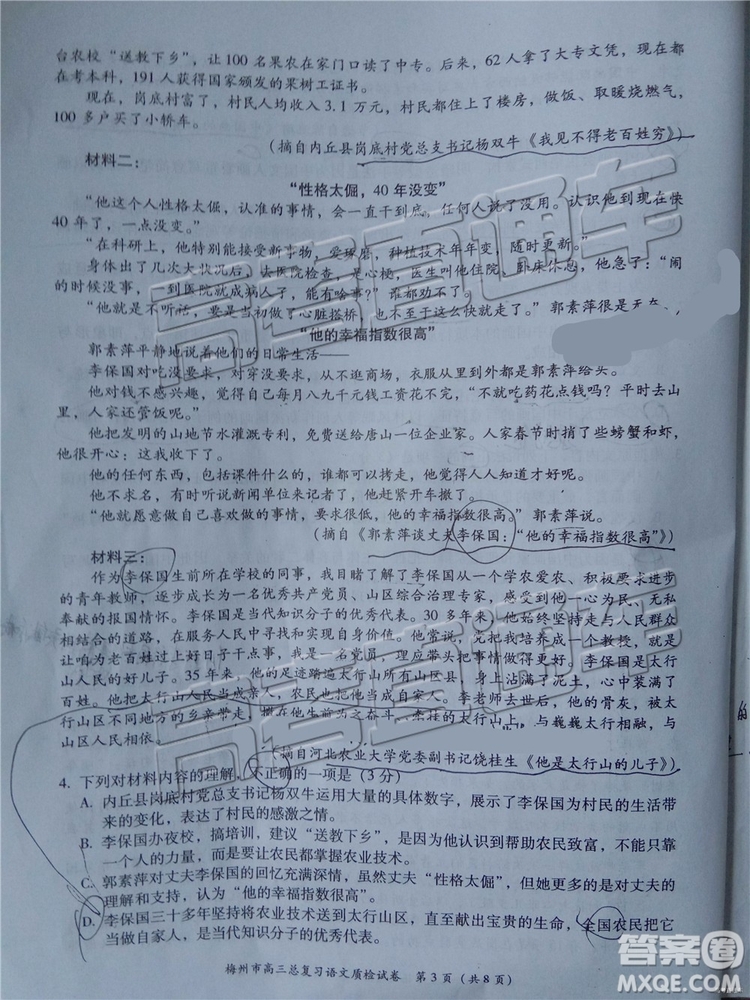 台农校“送教下乡”，让100名果农在家门口读了中专。后来，62人拿了大专文凭，现好多都
在考本科，191人获得国家颁发的果树工证书。
现在，岗底村富了，村民人均收入3.1万元，村民都住上了楼房，做饭、取暖烧燃气，
100多户买了小轿车。
（摘自内丘县岗底村党总支书记杨双牛《我见不得老百姓穷》）
材料二：
“性格太倔，40年没变”
“他这个人性格太倔，认准的事情，会一直干到底，任何人说了没用。认识他到现在快
40年了，一点没变。”
“在科研上，他特别能接受新事物，爱琢磨，种植技术年年变，随时更新。”
身体出了几次大状况后，去医院检查，是心梗，医生叫他住院、卧床休息，他急：“闹
的时候没事，一到医院就成病人了，能有啥事？”谁都劝不了。
“他就是不听话，要是当初做了心脏搭桥，也不至于这么快就走了。”郭素萍很是无
“他的幸福指数很高”
郭素萍平静地说着他们的日常生活——
李保国对吃没要求，对穿没要求，从不逛商场，衣服从里到外都是郭素萍给买。
他对钱不感兴趣，觉得自己每月八九千元钱工资花不完，“不就吃药花点钱吗？平时去山
里，人家还管饭呢。”
他把发明的山地节水灌溉专利，免费送给唐山一位企业家。人家春节时捎了些螃蟹和虾，
他很开心：这我收下了。
他的任何东西，包括课件什么的，谁都可以拷走，他觉得人人知道才好呢。
他不求名，有时听说新闻单位来记者了，他赶紧开车撤了。
“他就愿意做自己喜欢做的事情，要求很低，他的幸福指数很高。”郭素萍说。
（摘自《郭素萍谈丈夫李保国：“他的幸福指数很高”》）
材料三：
作为李保国生前所在学校的同事，我目睹了解了李保国从一个学农爱农、积极要求进步
的青年教师，逐步成长为一名优秀共产党员、山区综合治理专家，感受到了他无怨无悔、无私
奉献的报国情怀。李保国是当代知识分子的优秀代表。30多年来，他始终坚持走与人民群众
相结合的道路，在服务人民中寻找和实现自身价值。他常说，完美不是享受安逸的教授，就是
让为老百姓过上好日子干点事，我是一名党员，理应带头把工作做得更好。李保国是太行
山人民的好儿子。35年来，他的足迹踏遍太行山所有山区县，身上沾满了泥土，心中装满了
百姓。他把太行山人民当成亲人，农民也把他当成亲人。李老师去世后，他的骨灰，被太
行山区不同地方的乡亲带走，撒在他生前为之奋斗一条样的太行山上，与巍巍太行相融，与
山区人民相依。
（摘自河北农业大学党委副书记饶桂生《他是太行山的儿子》）
4. 下列对材料内容的理解，不正确的一项是（3分）
A. 内丘县岗底村党总支书记杨双牛运用大量的具体数字，展示了李保国为村民的生活带
来的变化，表达了村民的感激之情。
B. 李保国办夜校，搞培训，建议“送教下乡”，是因为他认识到帮助农民致富，不能只靠
一个人的力量，而是要让农民都掌握农业技术。
C. 郭素萍对丈夫李保国的回忆充满深情，虽然丈夫“性格太倔”，但她更多的是对丈夫的
理解和支持，认为“他的幸福指数很高”。
D. 李保国三十多年坚持将农业技术送到太行山区，直至献出宝贵的生命，全国农民把它
当做自家人，是当代知识分子的优秀代表。
梅州市高三总复习语文质检试卷 第3页（共8页）
高考直通车
高考直通车
高考直通车
答案圈
MXQE.COM